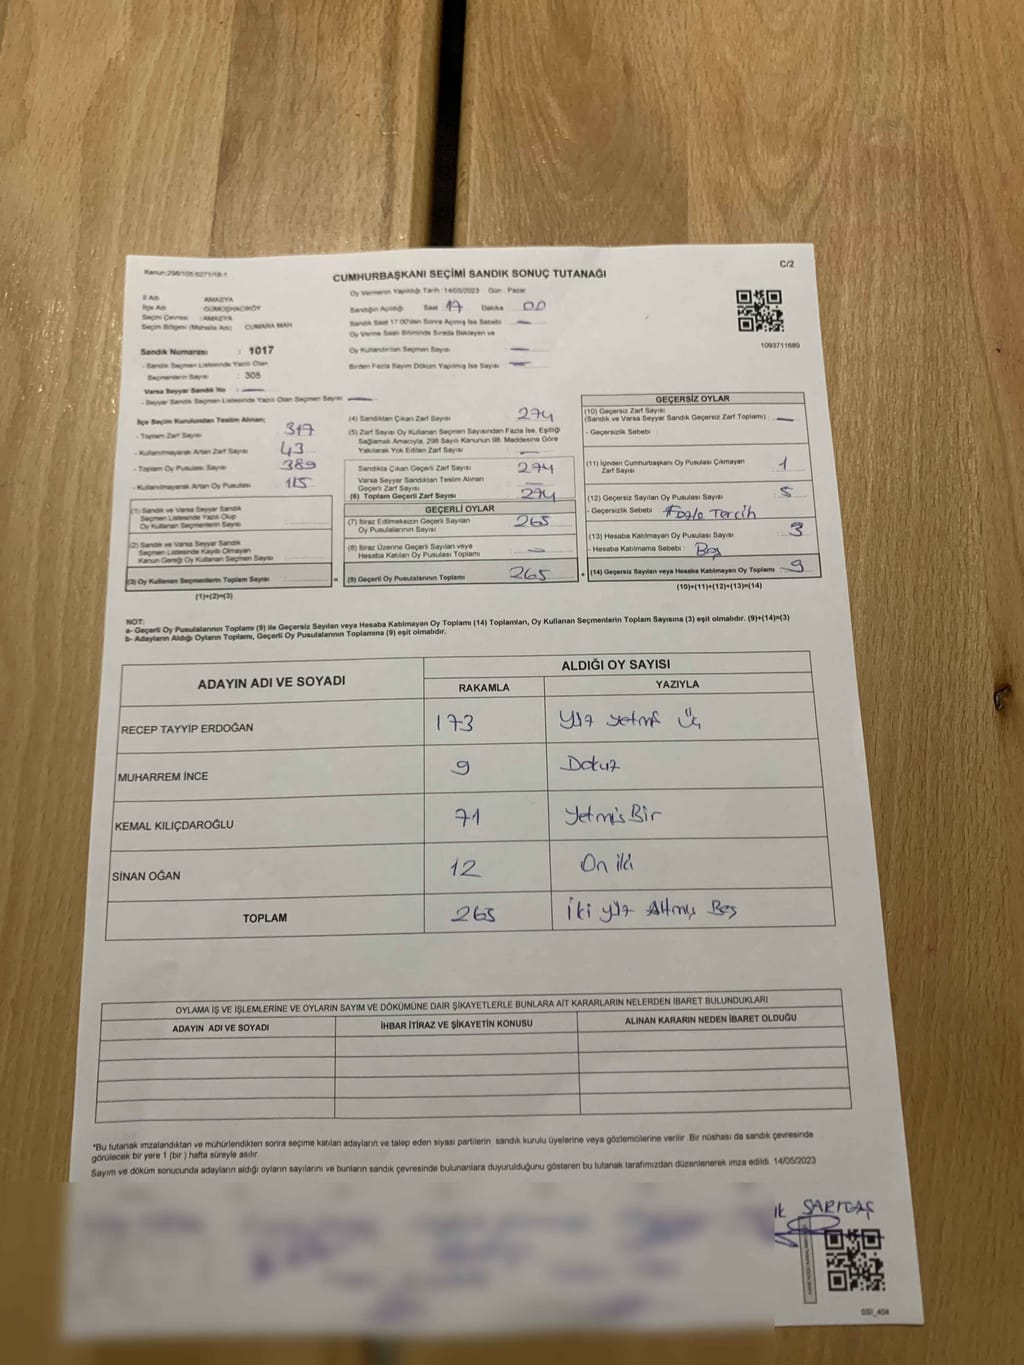 Kanun:298/105-6271/16-1
C/2
CUMHURBAŞKANI SEÇİMİ SANDIK SONUÇ TUTANAĞI
İl Adı : AMASYA
İlçe Adı : GÜMÜŞHACIKÖY
Seçim Çevresi : AMASYA
Seçim Bölgesi (Mahalle Adı) : CUMARA MAH
Sandık Numarası : 1017
- Sandık Seçmen Listesinde Yazılı Olan
Seçmenlerin Sayısı : 305
Varsa Seyyar Sandık No : —
- Seyyar Sandık Seçmen Listesinde Yazılı Olan Seçmen Sayısı : —
Oy Vermenin Yapıldığı Tarih : 14/05/2023 Gün : Pazar
Sandığın Açıldığı Saat 17 Dakika 00
Sandık Saat 17:00'den Sonra Açmış İse Sebebi —
Oy Verme Saati Bitiminde Sırada Bekleyen ve
Oy Kullandırılan Seçmen Sayısı —
Birden Fazla Sayım Döküm Yapılmış İse Sayısı —
1093711689
İlçe Seçim Kurulundan Teslim Alınan;
- Toplam Zarf Sayısı 317
- Kullanılmayarak Artan Zarf Sayısı 43
- Toplam Oy Pusulası Sayısı 389
- Kullanılmayarak Artan Oy Pusulası 115
(1) Sandık ve Varsa Seyyar Sandık
Seçmen Listesinde Yazılı Olup
Oy Kullanan Seçmenlerin Sayısı
(2) Sandık ve Varsa Seyyar Sandık
Seçmen Listesinde Kayıtlı Olmayan
Kanun Gereği Oy Kullanan Seçmen Sayısı
(3) Oy Kullanan Seçmenlerin Toplam Sayısı =
(1)+(2)=(3)
(4) Sandıktan Çıkan Zarf Sayısı 274
(5) Zarf Sayısı Oy Kullanan Seçmen Sayısından Fazla İse, Eşitliği
Sağlamak Amacıyla, 298 Sayılı Kanunun 98. Maddesine Göre
Yakılarak Yok Edilen Zarf Sayısı —
Sandıkta Çıkan Geçerli Zarf Sayısı 274
Varsa Seyyar Sandıktan Teslim Alınan
Geçerli Zarf Sayısı —
(6) Toplam Geçerli Zarf Sayısı 274
GEÇERLİ OYLAR
(7) İtiraz Edilmeksizin Geçerli Sayılan
Oy Pusulalarının Sayısı 265
(8) İtiraz Üzerine Geçerli Sayılan veya
Hesaba Katılan Oy Pusulası Toplamı —
(9) Geçerli Oy Pusulalarının Toplamı 265 +
GEÇERSİZ OYLAR
(10) Geçersiz Zarf Sayısı
(Sandık ve Varsa Seyyar Sandık Geçersiz Zarf Toplamı) : —
- Geçersizlik Sebebi :
(11) İçinden Cumhurbaşkanı Oy Pusulası Çıkmayan
Zarf Sayısı 1
(12) Geçersiz Sayılan Oy Pusulası Sayısı 5
- Geçersizlik Sebebi : Fazla Tercih
(13) Hesaba Katılmayan Oy Pusulası Sayısı 3
- Hesaba Katılmama Sebebi : Boş
(14) Geçersiz Sayılan veya Hesaba Katılmayan Oy Toplamı 9
(10)+(11)+(12)+(13)=(14)
NOT:
a- Geçerli Oy Pusulalarının Toplamı (9) ile Geçersiz Sayılan veya Hesaba Katılmayan Oy Toplamı (14) Toplamları, Oy Kullanan Seçmenlerin Toplam Sayısına (3) eşit olmalıdır. (9)+(14)=(3)
b- Adayların Aldığı Oyların Toplamı, Geçerli Oy Pusulalarının Toplamına (9) eşit olmalıdır.
ADAYIN ADI VE SOYADI
ALDIĞI OY SAYISI
RAKAMLA YAZIYLA
RECEP TAYYİP ERDOĞAN 173 Yüz yetmiş üç
MUHARREM İNCE 9 Dokuz
KEMAL KILIÇDAROĞLU 71 Yetmiş Bir
SİNAN OĞAN 12 On iki
TOPLAM 265 İki yüz Altmış Beş
OYLAMA İŞ VE İŞLEMLERİNE VE OYLARIN SAYIM VE DÖKÜMÜNE DAİR ŞİKAYETLERLE BUNLARA AİT KARARLARIN NELERDEN İBARET BULUNDUKLARI
ADAYIN ADI VE SOYADI İHBAR İTİRAZ VE ŞİKAYETİN KONUSU ALINAN KARARIN NEDEN İBARET OLDUĞU
*Bu tutanak imzalandıktan ve mühürlendikten sonra seçime katılan adayların ve talep eden siyasi partilerin sandık kurulu üyelerine veya gözlemcilerine verilir. Bir nüshası da sandık çevresinde
görülecek bir yere 1 (bir) hafta süreyle asılır.
Sayım ve döküm sonucunda adayların aldığı oyların sayılarını ve bunların sandık çevresinde bulunanlara duyurulduğunu gösteren bu tutanak tarafımızdan düzenlenerek imza edildi. 14/05/2023
SARITAŞ
SSI_404